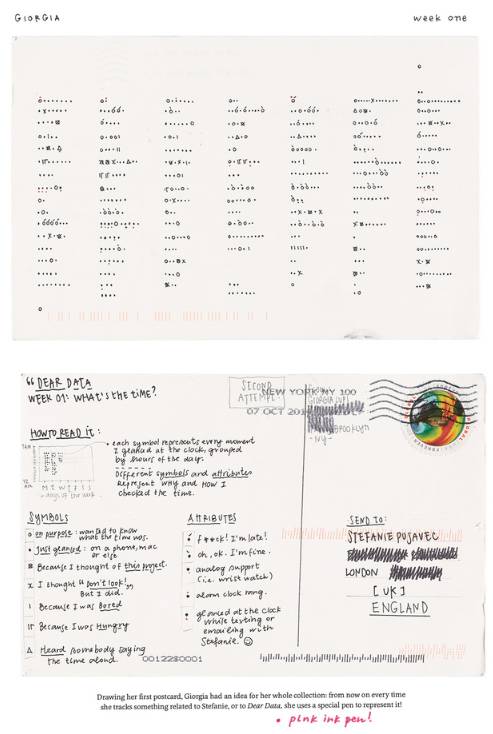 GIORGIA
week one
"DEAR DATA
WEEK 01: WHAT'S THE TIME?
SECOND
ATTEMPT
NEW YORK NY 100
07 OCT
BROOKLYN
-NY-
HOW TO READ IT:
• each symbol represents every moment
I glanced at the clock, grouped
by hours of the day.
Different symbols and attributes
represent why and how I
checked the time.
M T W T F S S
days of the week
SYMBOLS
on purpose: wanted to know
what the time was.
Just glanced: on a phone, mac
or else
Because I thought of this project.
x I thought "Don't look!",
But I did.
Because I was Bored
Because I was Hungry
Δ Heard somebody saying
the time aloud.
ATTRIBUTES
f**ck! I'm late!
oh, ok. I'm fine.
analog support
(i.e. wrist watch)
alarm clock rang.
glanced at the clock
while texting or
emailing with
Stefanie. ☺
SEND TO:
STEFANIE POSAVEC
LONDON
[UK]
ENGLAND
Drawing her first postcard, Giorgia had an idea for her whole collection: from now on every time
she tracks something related to Stefanie, or to Dear Data, she uses a special pen to represent it!
• pink ink pen!